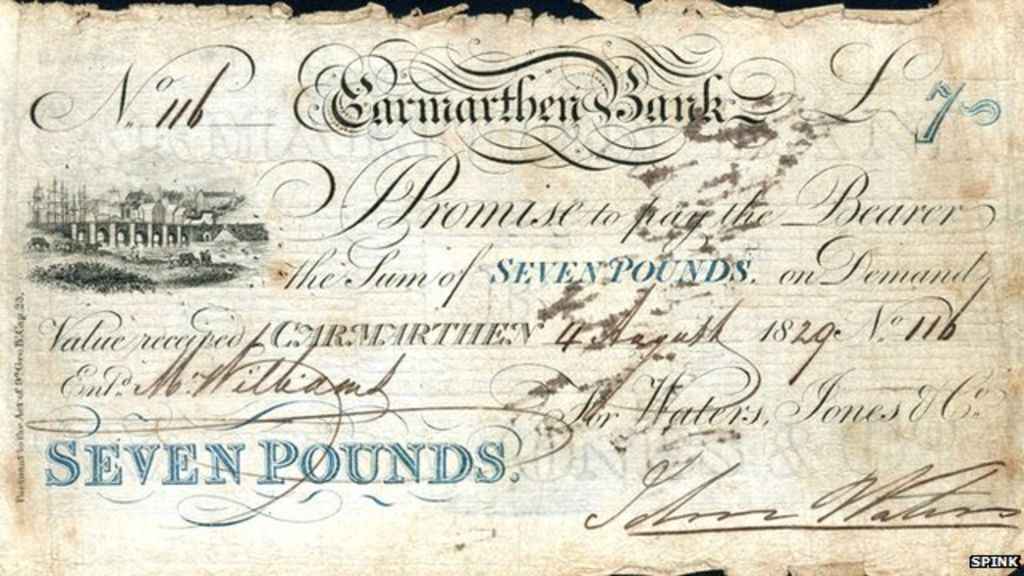 No 116 Carmarthen Bank £ 7
I Promise to pay the Bearer
the Sum of SEVEN POUNDS. on Demand
Value received CARMARTHEN 4 August 1829 No 116
Entd. M. Williams For Waters, Jones & Co.
SEVEN POUNDS.
John Waters
SPINK